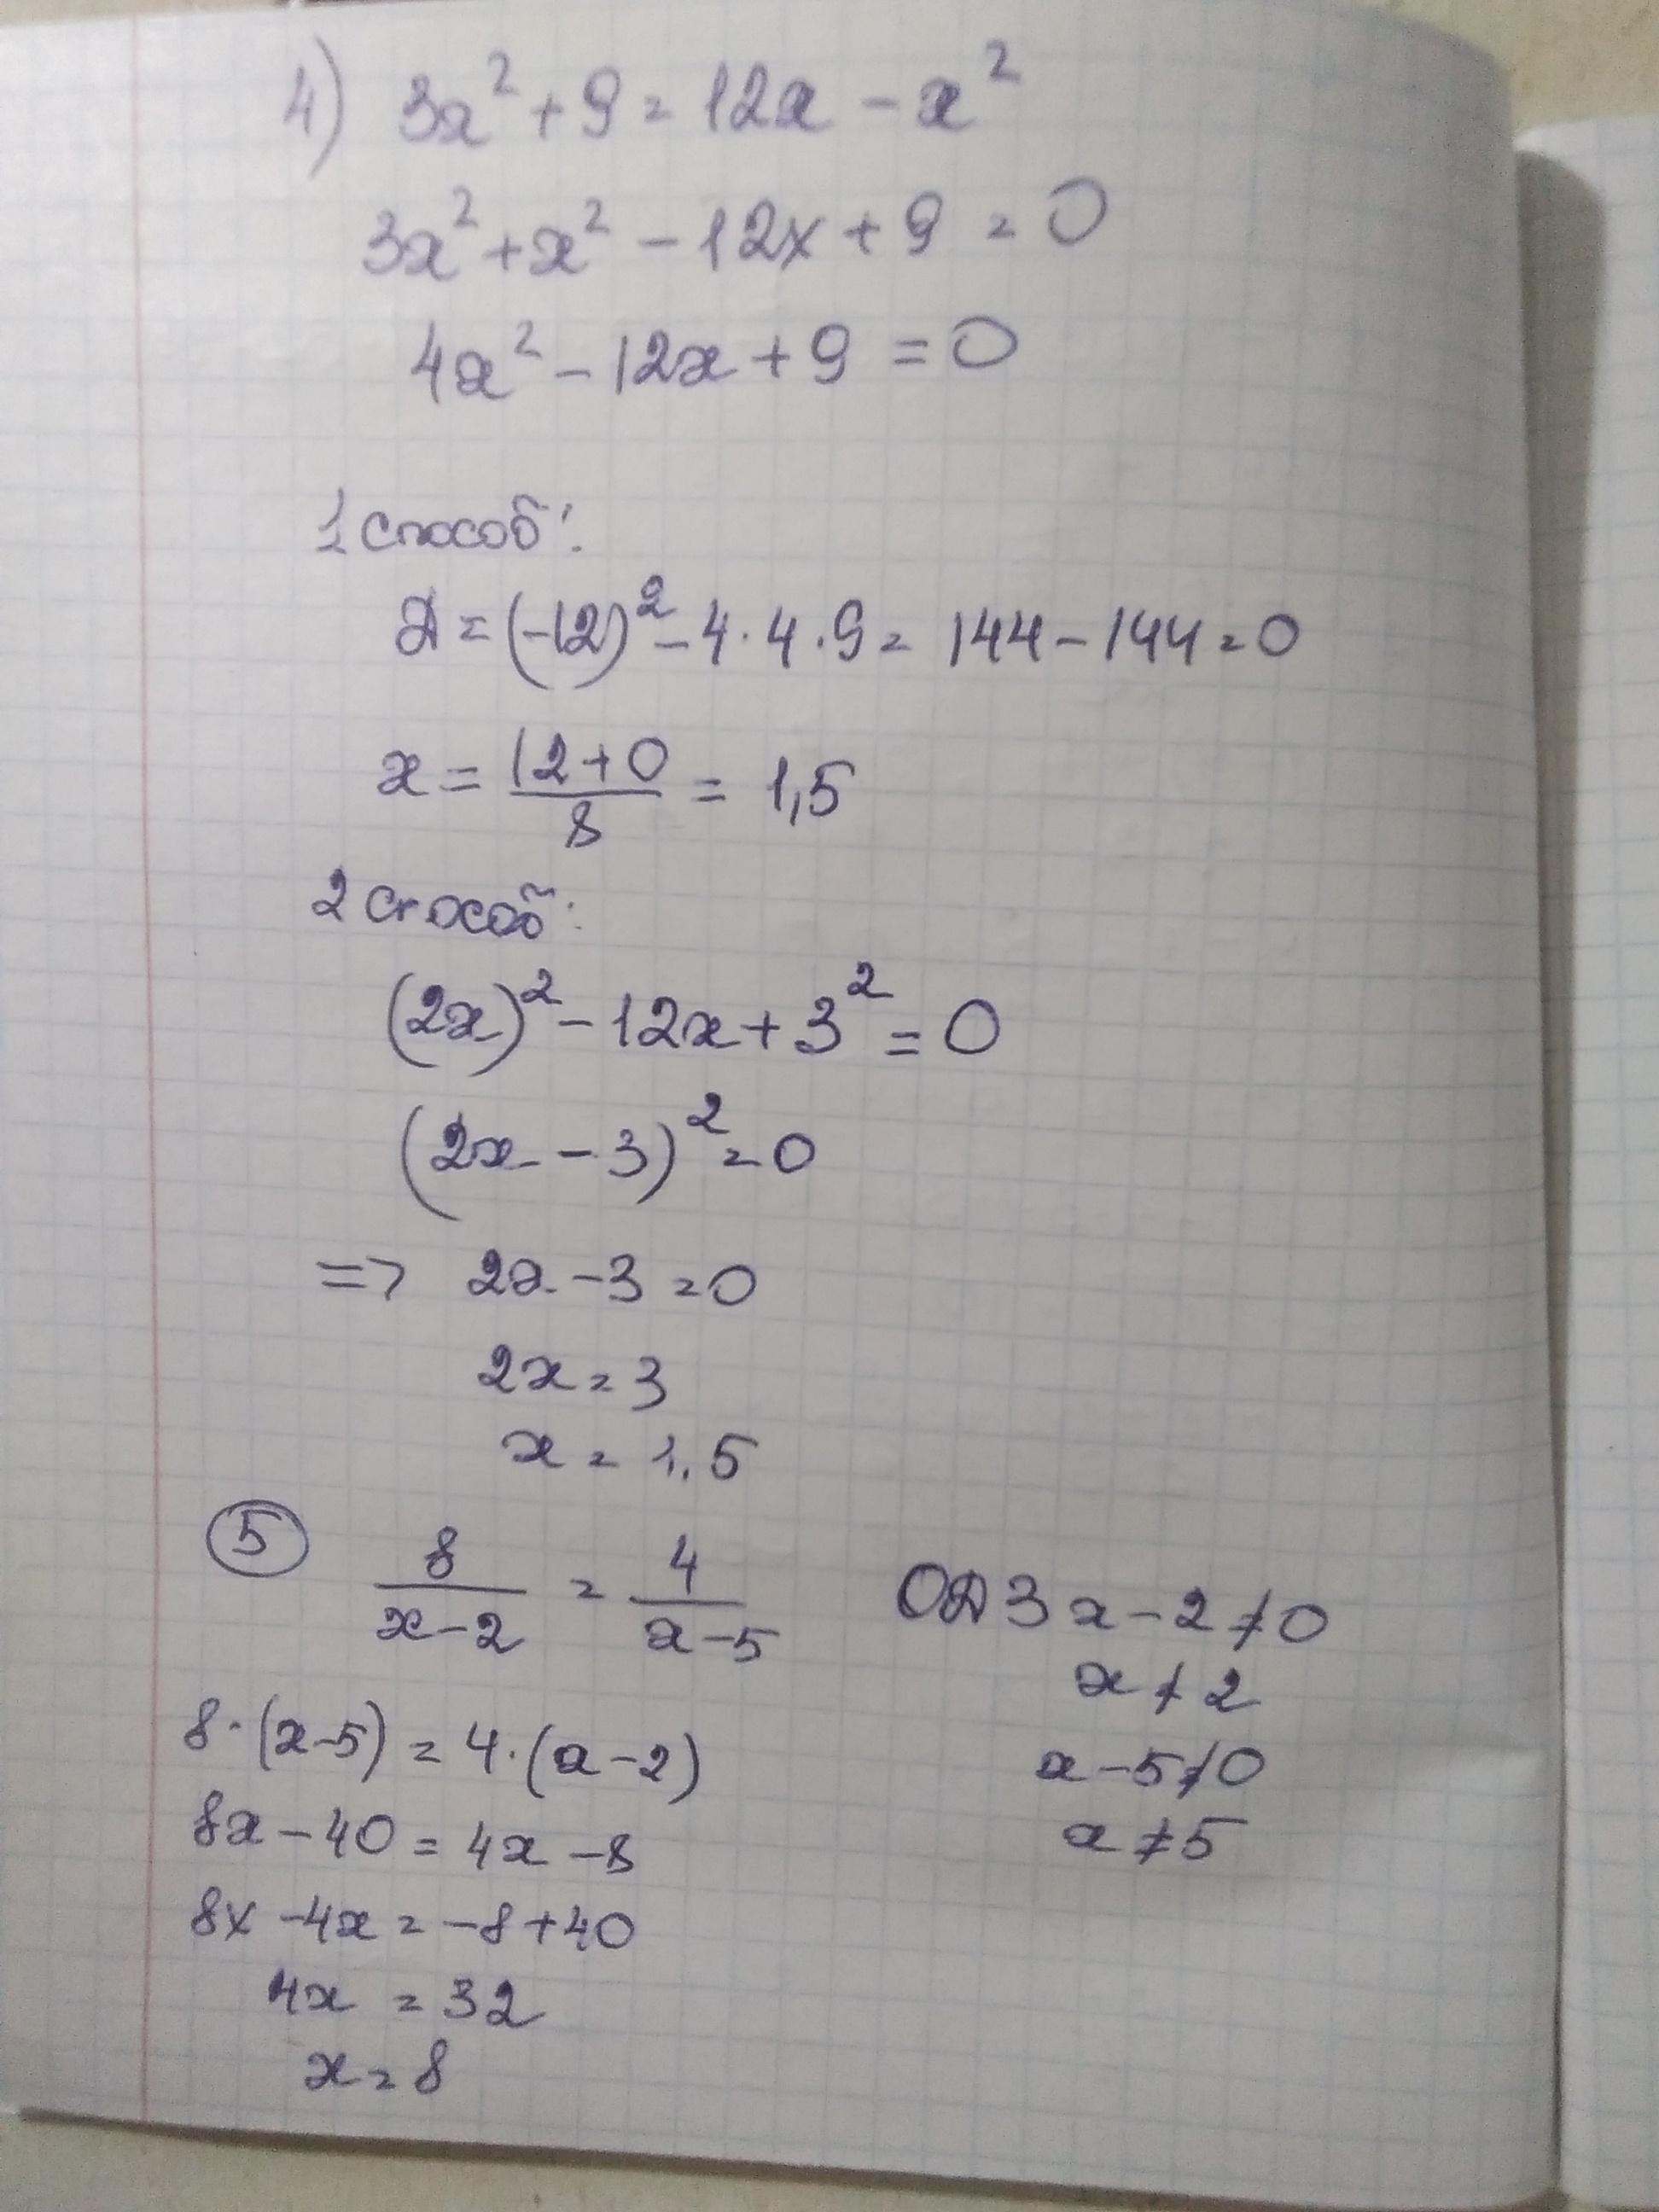 4) 3x² + 9 = 12x - x²
3x² + x² - 12x + 9 = 0
4x² - 12x + 9 = 0
1 способ:
Д = (-12)² - 4 · 4 · 9 = 144 - 144 = 0
x = (12+0)/8 = 1,5
2 способ:
(2x)² - 12x + 3² = 0
(2x - 3)² = 0
=> 2x - 3 = 0
2x = 3
x = 1.5
5 8/(x-2) = 4/(x-5)
ОДЗ x - 2 ≠ 0
x ≠ 2
x - 5 ≠ 0
x ≠ 5
8 · (x-5) = 4 · (x-2)
8x - 40 = 4x - 8
8x - 4x = -8 + 40
4x = 32
x = 8